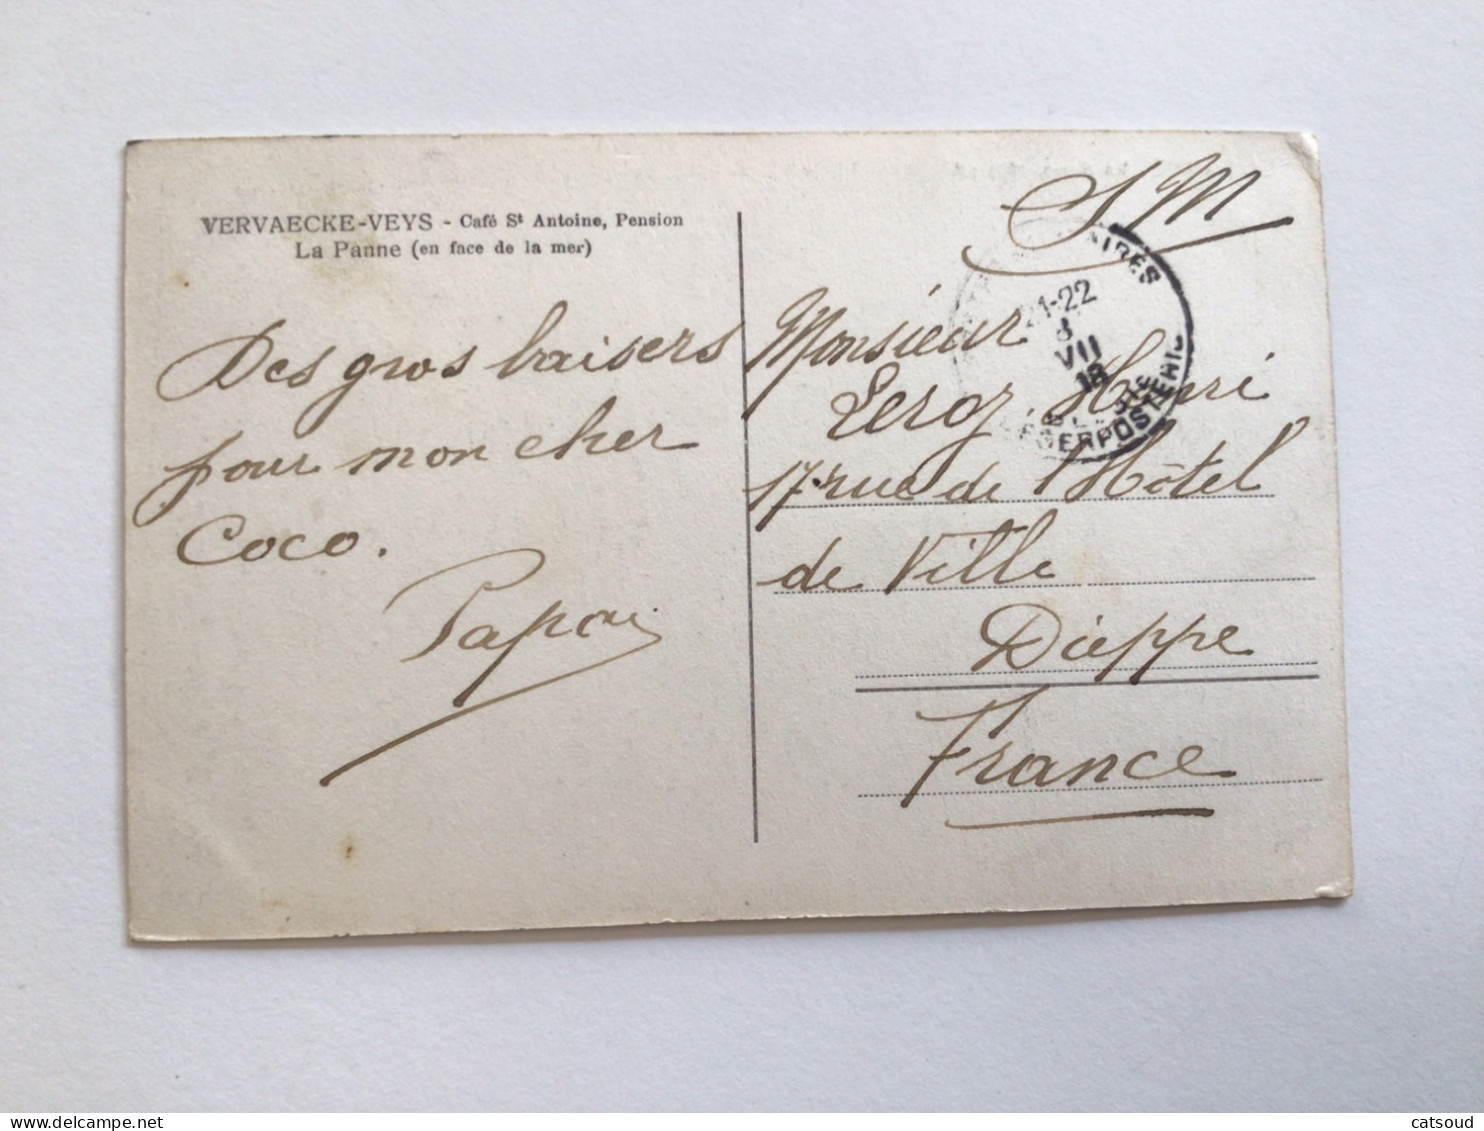 VERVAECKE-VEYS - Café St Antoine, Pension
La Panne (en face de la mer)
Des gros baisers
pour mon cher
Coco.
Papou
S M
21-22
VII
18
LEGERPOSTERIJ
Monsieur
Leroy Henri
17 rue de l'Hôtel
de Ville
Dieppe
France
catsoud